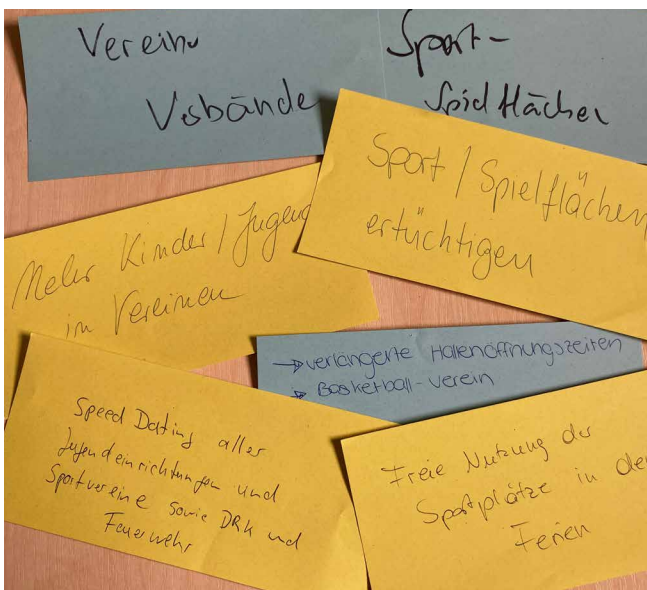 Vereine
Verbände
Sport-
Spielflächen
Sport / Spielflächen
ertüchtigen
Mehr Kinder / Jugend
in Vereinen
→ verlängerte Hallenöffnungszeiten
→ Basketball-Verein
Speed Dating aller
Jugendeinrichtungen und
Sportvereine sowie DRK und
Feuerwehr
Freie Nutzung der
Sportplätze in den
Ferien